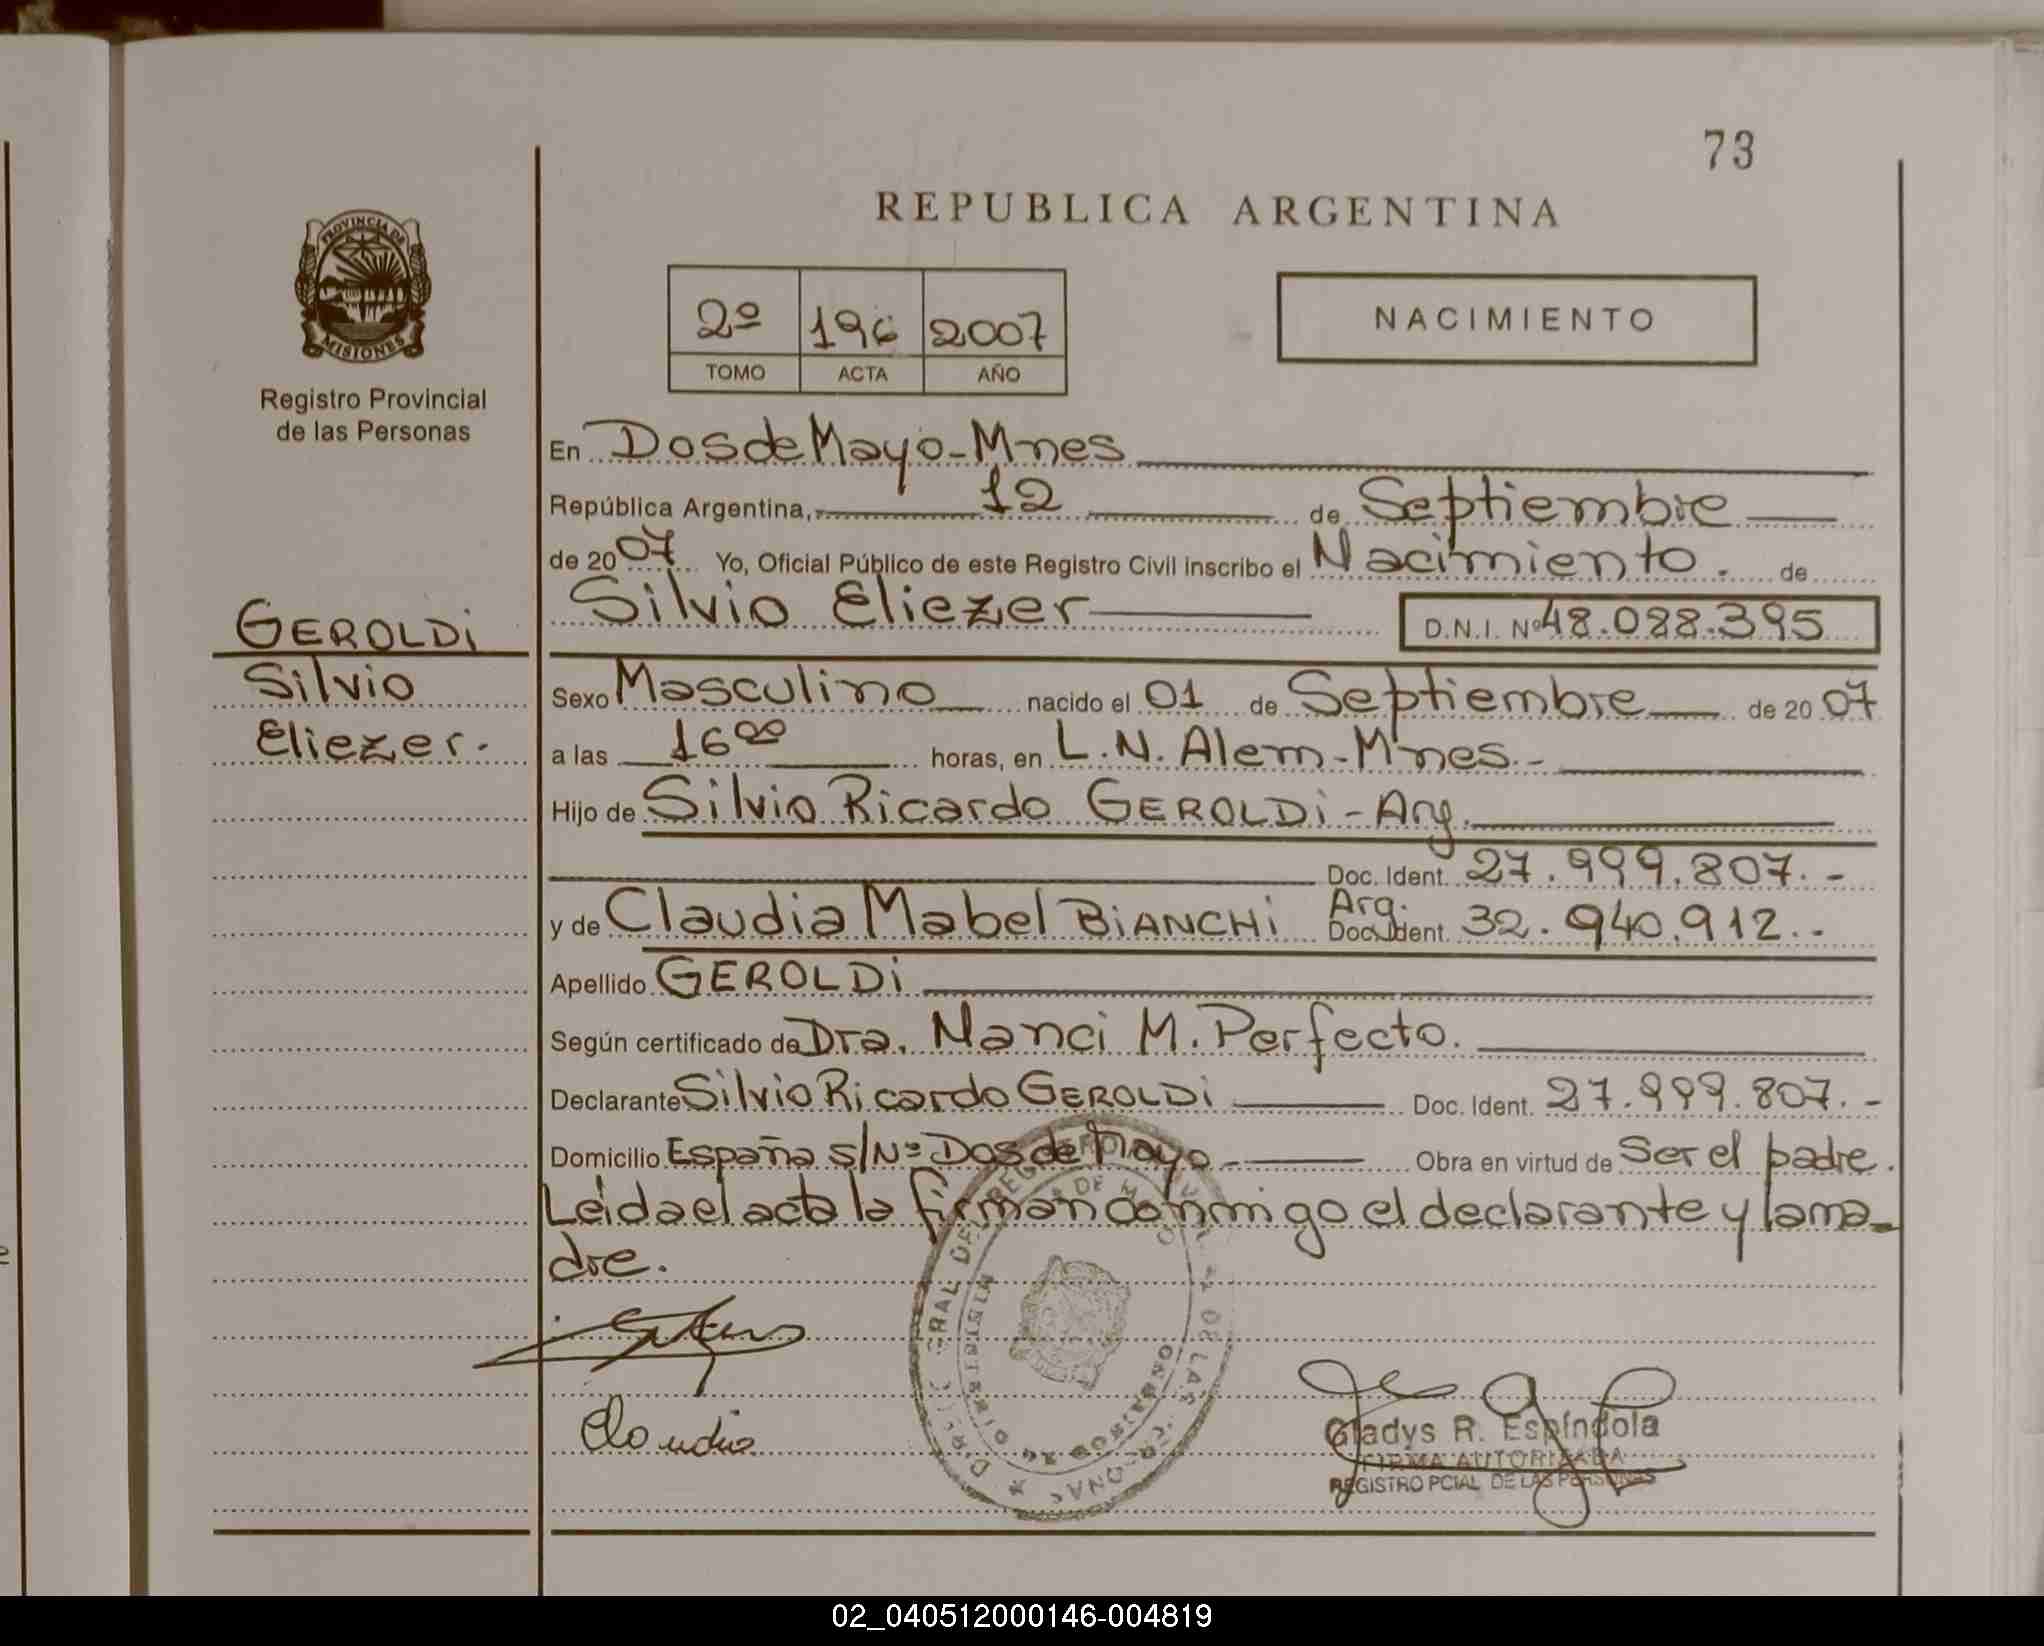 73
REPUBLICA ARGENTINA
PROVINCIA DE
MISIONES
Registro Provincial
de las Personas
2º 196 2007
TOMO ACTA AÑO
NACIMIENTO
En Dos de Mayo - Mnes
República Argentina, 12 de Septiembre
de 2007 Yo, Oficial Público de este Registro Civil inscribo el Nacimiento. de
Silvio Eliezer D.N.I. Nº 48.088.395
GEROLDi
Silvio
Eliezer.
Sexo Masculino nacido el 01 de Septiembre de 2007
a las 16 00 horas, en L.N. Alem - Mnes.-
Hijo de Silvio Ricardo GEROLDi - Arg.
Doc. Ident. 27.999.807.-
y de Claudia Mabel BiANCHi Arg. Doc. Ident. 32.940.912.-
Apellido GEROLDi
Según certificado de Dra. Nanci M. Perfecto.
Declarante Silvio Ricardo GEROLDi Doc. Ident. 27.999.807.-
Domicilio España s/Nº Dos de Mayo Obra en virtud de Ser el padre.
Leida el acta la firman conmigo el declarante y la ma-
dre.
Claudia
Gladys R. Espíndola
FIRMA AUTORIZADA
REGISTRO PCIAL DE LAS PERSONAS
02_040512000146-004819